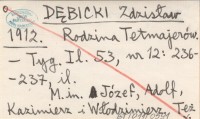 DĘBICKI Zdzisław
1912. Rodzina Tetmajerów.
- Tyg. Il. 53, nr 12: 236-
-237, il.
M.in. Józef, Adolf,
Kazimierz i Włodzimierz. Też